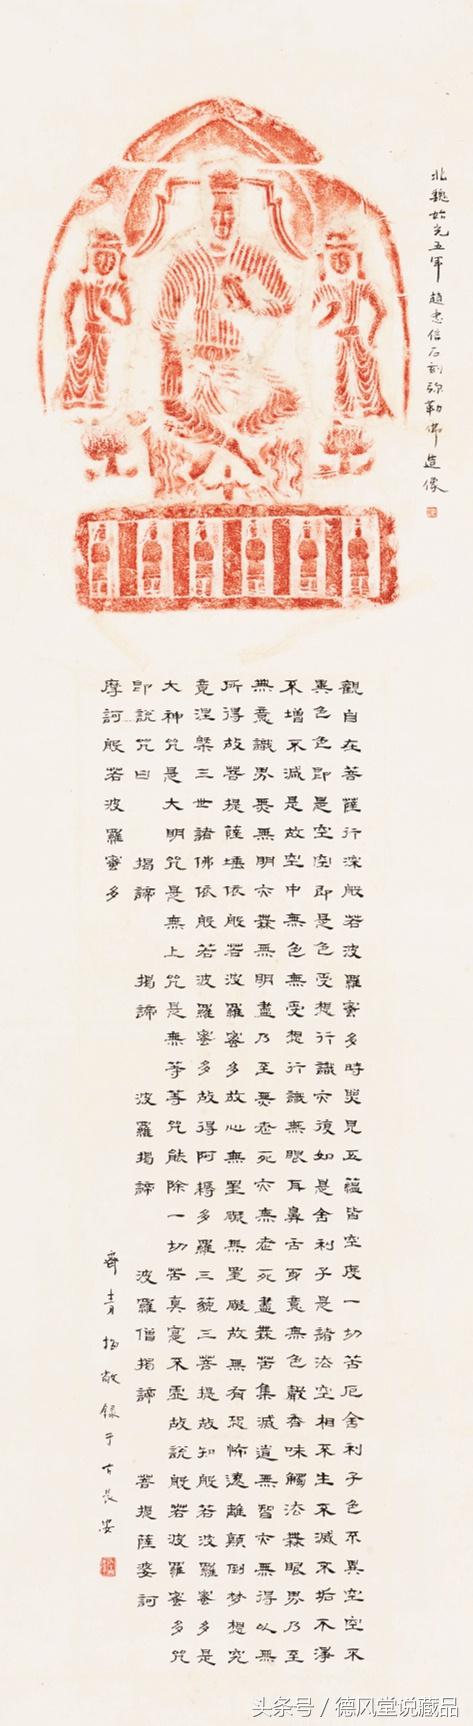 北魏始光五年 趙忠信石刻弥勒佛造像
觀自在菩薩行深般若波羅蜜多時照見五蘊皆空度一切苦厄舍利子色不異空空不
異色色即是空空即是色受想行識亦復如是舍利子是諸法空相不生不滅不垢不淨
不增不減是故空中無色無受想行識無眼耳鼻舌身意無色聲香味觸法無眼界乃至
無意識界無無明亦無無明盡乃至無老死亦無老死盡無苦集滅道無智亦無得以無
所得故菩提薩埵依般若波羅蜜多故心無罣礙無罣礙故無有恐怖遠離顛倒梦想究
竟涅槃三世諸佛依般若波羅蜜多故得阿耨多羅三藐三菩提故知般若波羅蜜多是
大神咒是大明咒是無上咒是無等等咒能除一切苦真實不虛故說般若波羅蜜多咒
即說咒曰 揭諦 揭諦 波羅揭諦 波羅僧揭諦 菩提薩婆訶
摩訶般若波羅蜜多
齊青 敬録于古長安
头条号 / 德风堂说藏品